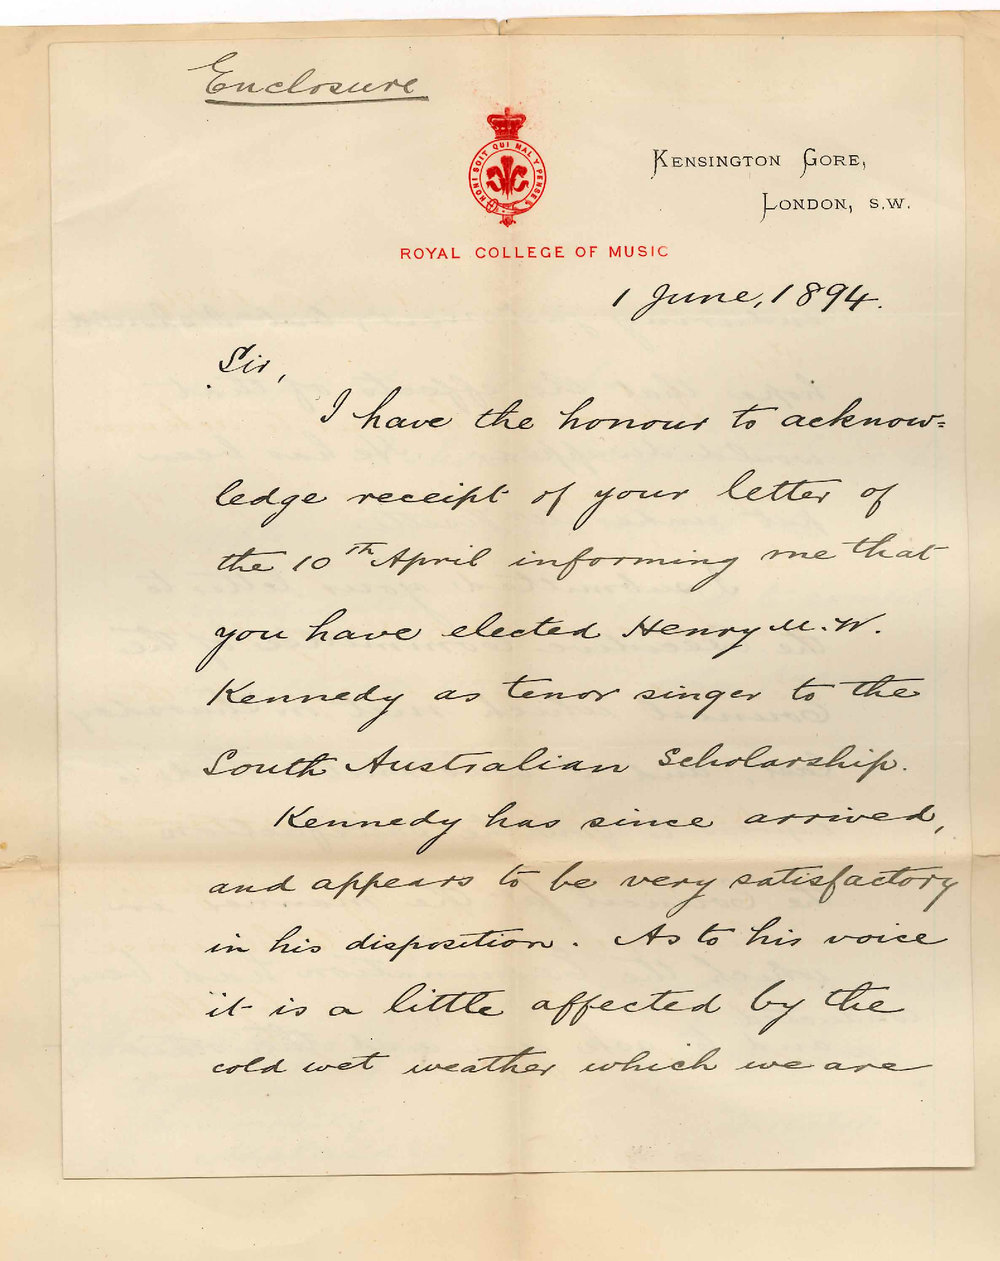 Enclosure
HONI SOIT QUI MAL Y PENSE
KENSINGTON GORE,
LONDON, S.W.
ROYAL COLLEGE OF MUSIC
1 June, 1894.
Sir,
I have the honour to acknow=
ledge receipt of your letter of
the 10th April informing me that
you have elected Henry M. W.
Kennedy as tenor singer to the
South Australian Scholarship.
Kennedy has since arrived,
and appears to be very satisfactory
in his disposition. As to his voice
it is a little affected by the
cold wet weather which we are